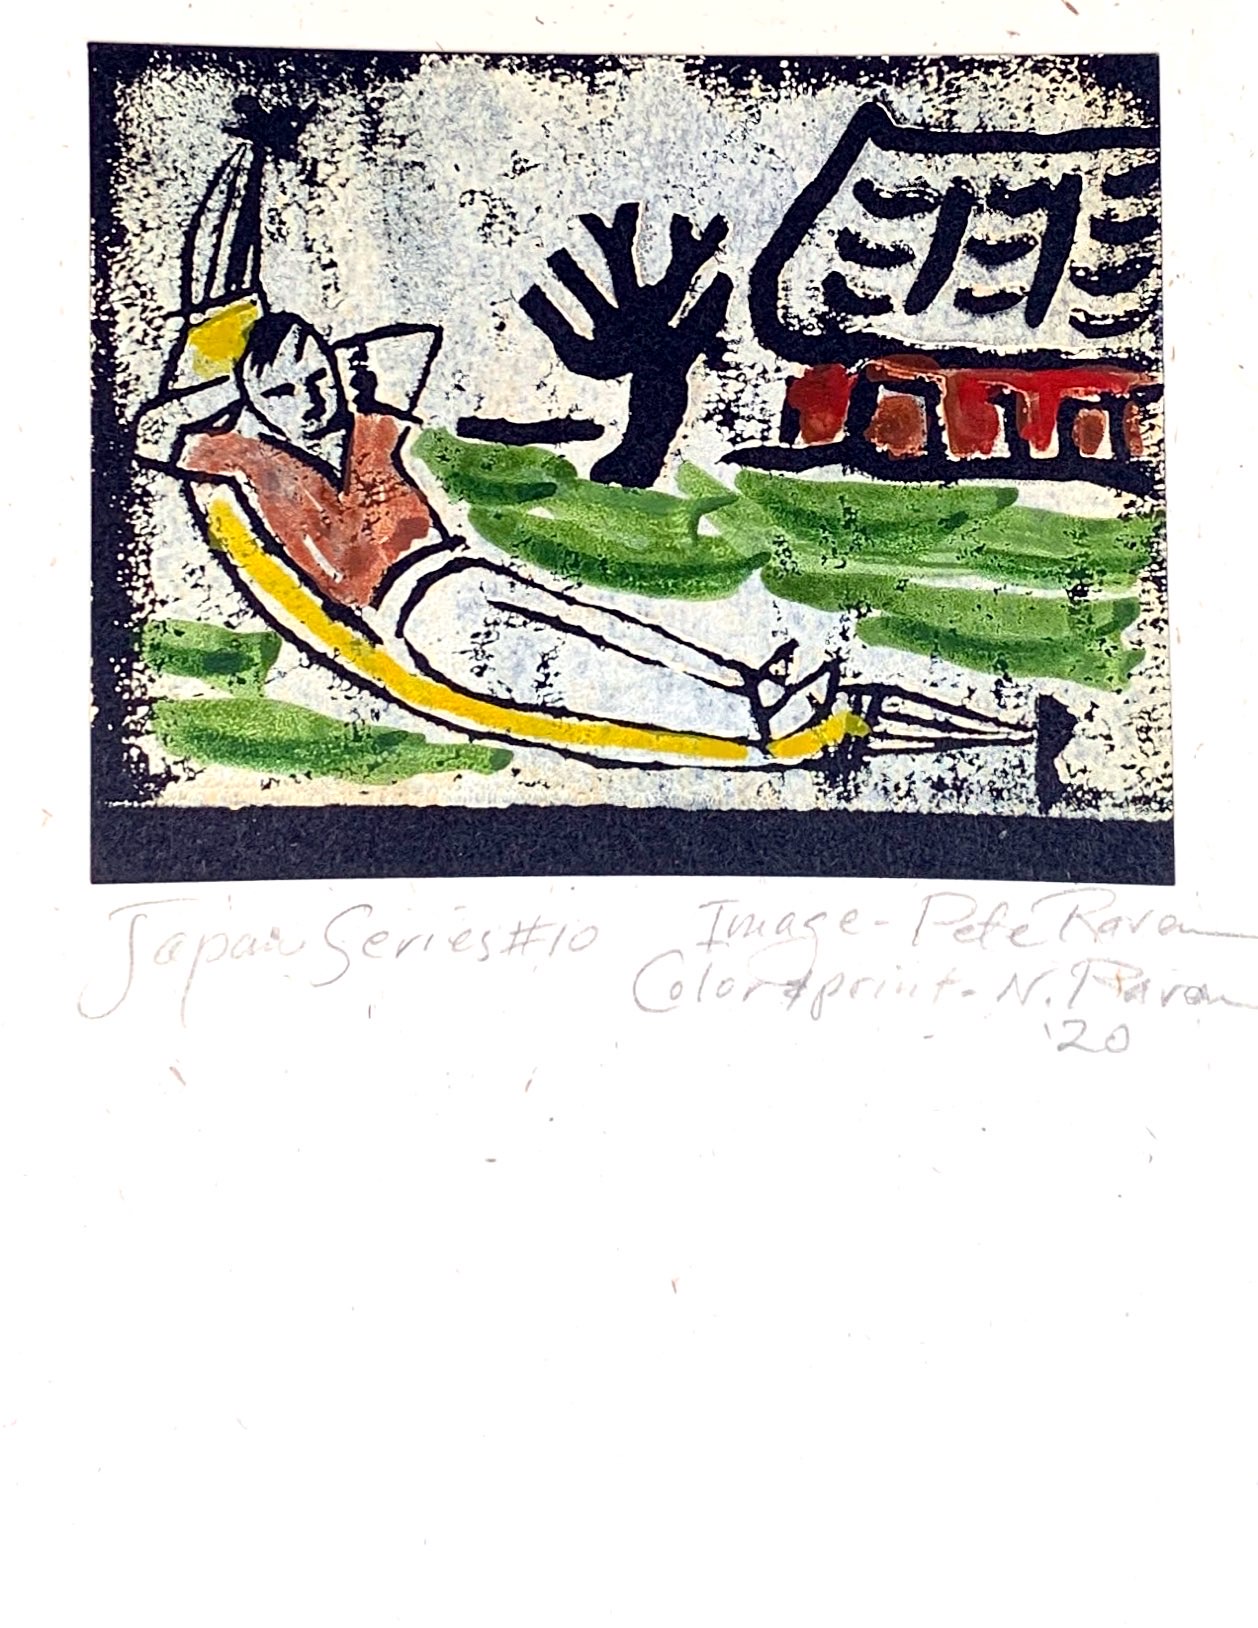 Japan Series #10
Image - Pete Raven
Color & print - N. Raven
'20